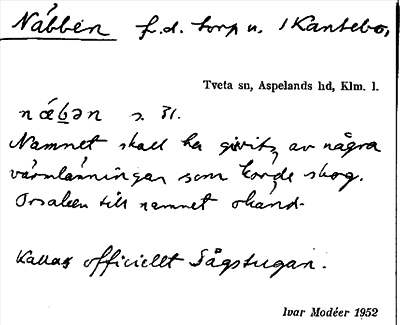 Näbben f.d. torp u. /Kantebo,
Tveta sn, Aspelands hd, Klm. l.
næ̀b̲ən s. 31.
Namnet skall ha givits av några
värmlänningar som körde skog.
Orsaken till namnet okänd.
Kallas officiellt Sågstugan.
Ivar Modéer 1952